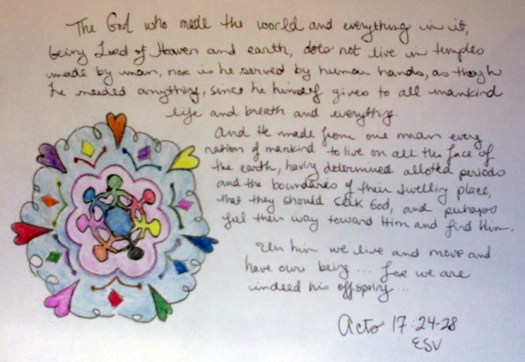 The God who made the world and everything in it,
being Lord of Heaven and earth, does not live in temples
made by man, nor is he served by human hands, as though
he needed anything, since he himself gives to all mankind
life and breath and everything.
And He made from one man every
nation of mankind to live on all the face of
the earth, having determined allotted periods
and the boundaries of their dwelling place,
that they should seek God, and perhaps
feel their way toward Him and find Him.
"In him we live and move and
have our being... for we are
indeed his offspring...
Acts 17:24-28
ESV